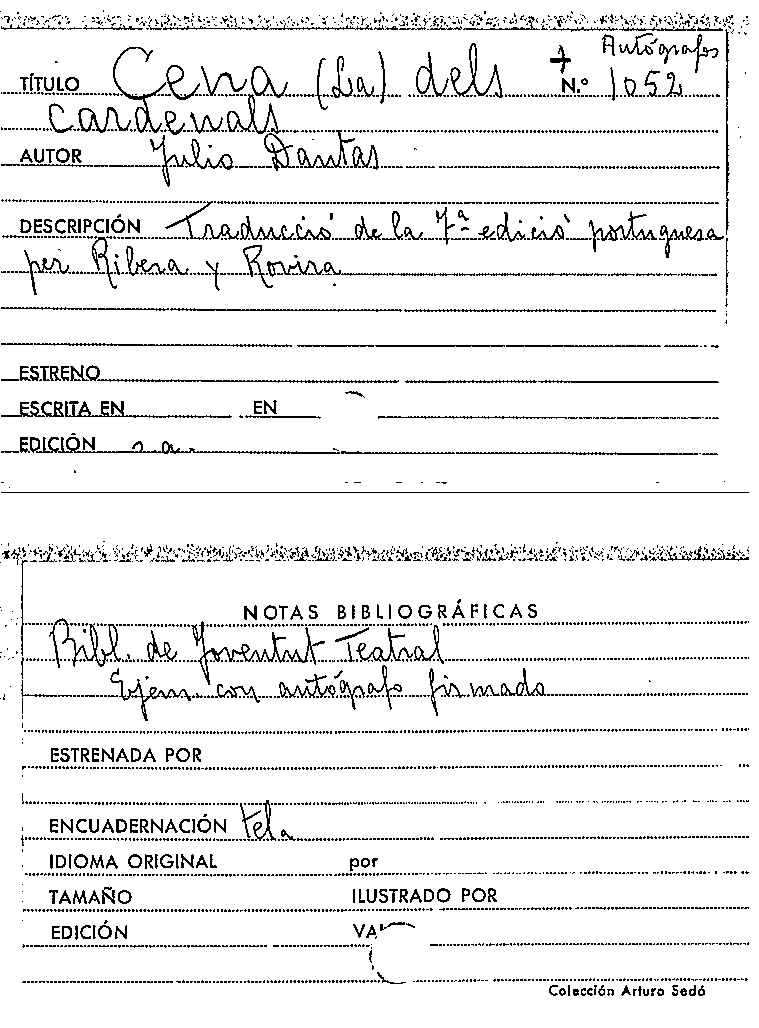 Autógrafos
TÍTULO Cena (La) dels + N.º 1052
cardenals
AUTOR Julio Dantas
DESCRIPCIÓN Traducció de la 7ª edició portuguesa
per Ribera y Rovira
ESTRENO
ESCRITA EN EN
EDICIÓN s.a.
NOTAS BIBLIOGRÁFICAS
Bibl. de Joventut Teatral
Ejem. con autógrafo firmado
ESTRENADA POR
ENCUADERNACIÓN tela
IDIOMA ORIGINAL por
TAMAÑO ILUSTRADO POR
EDICIÓN
Colección Arturo Sedó